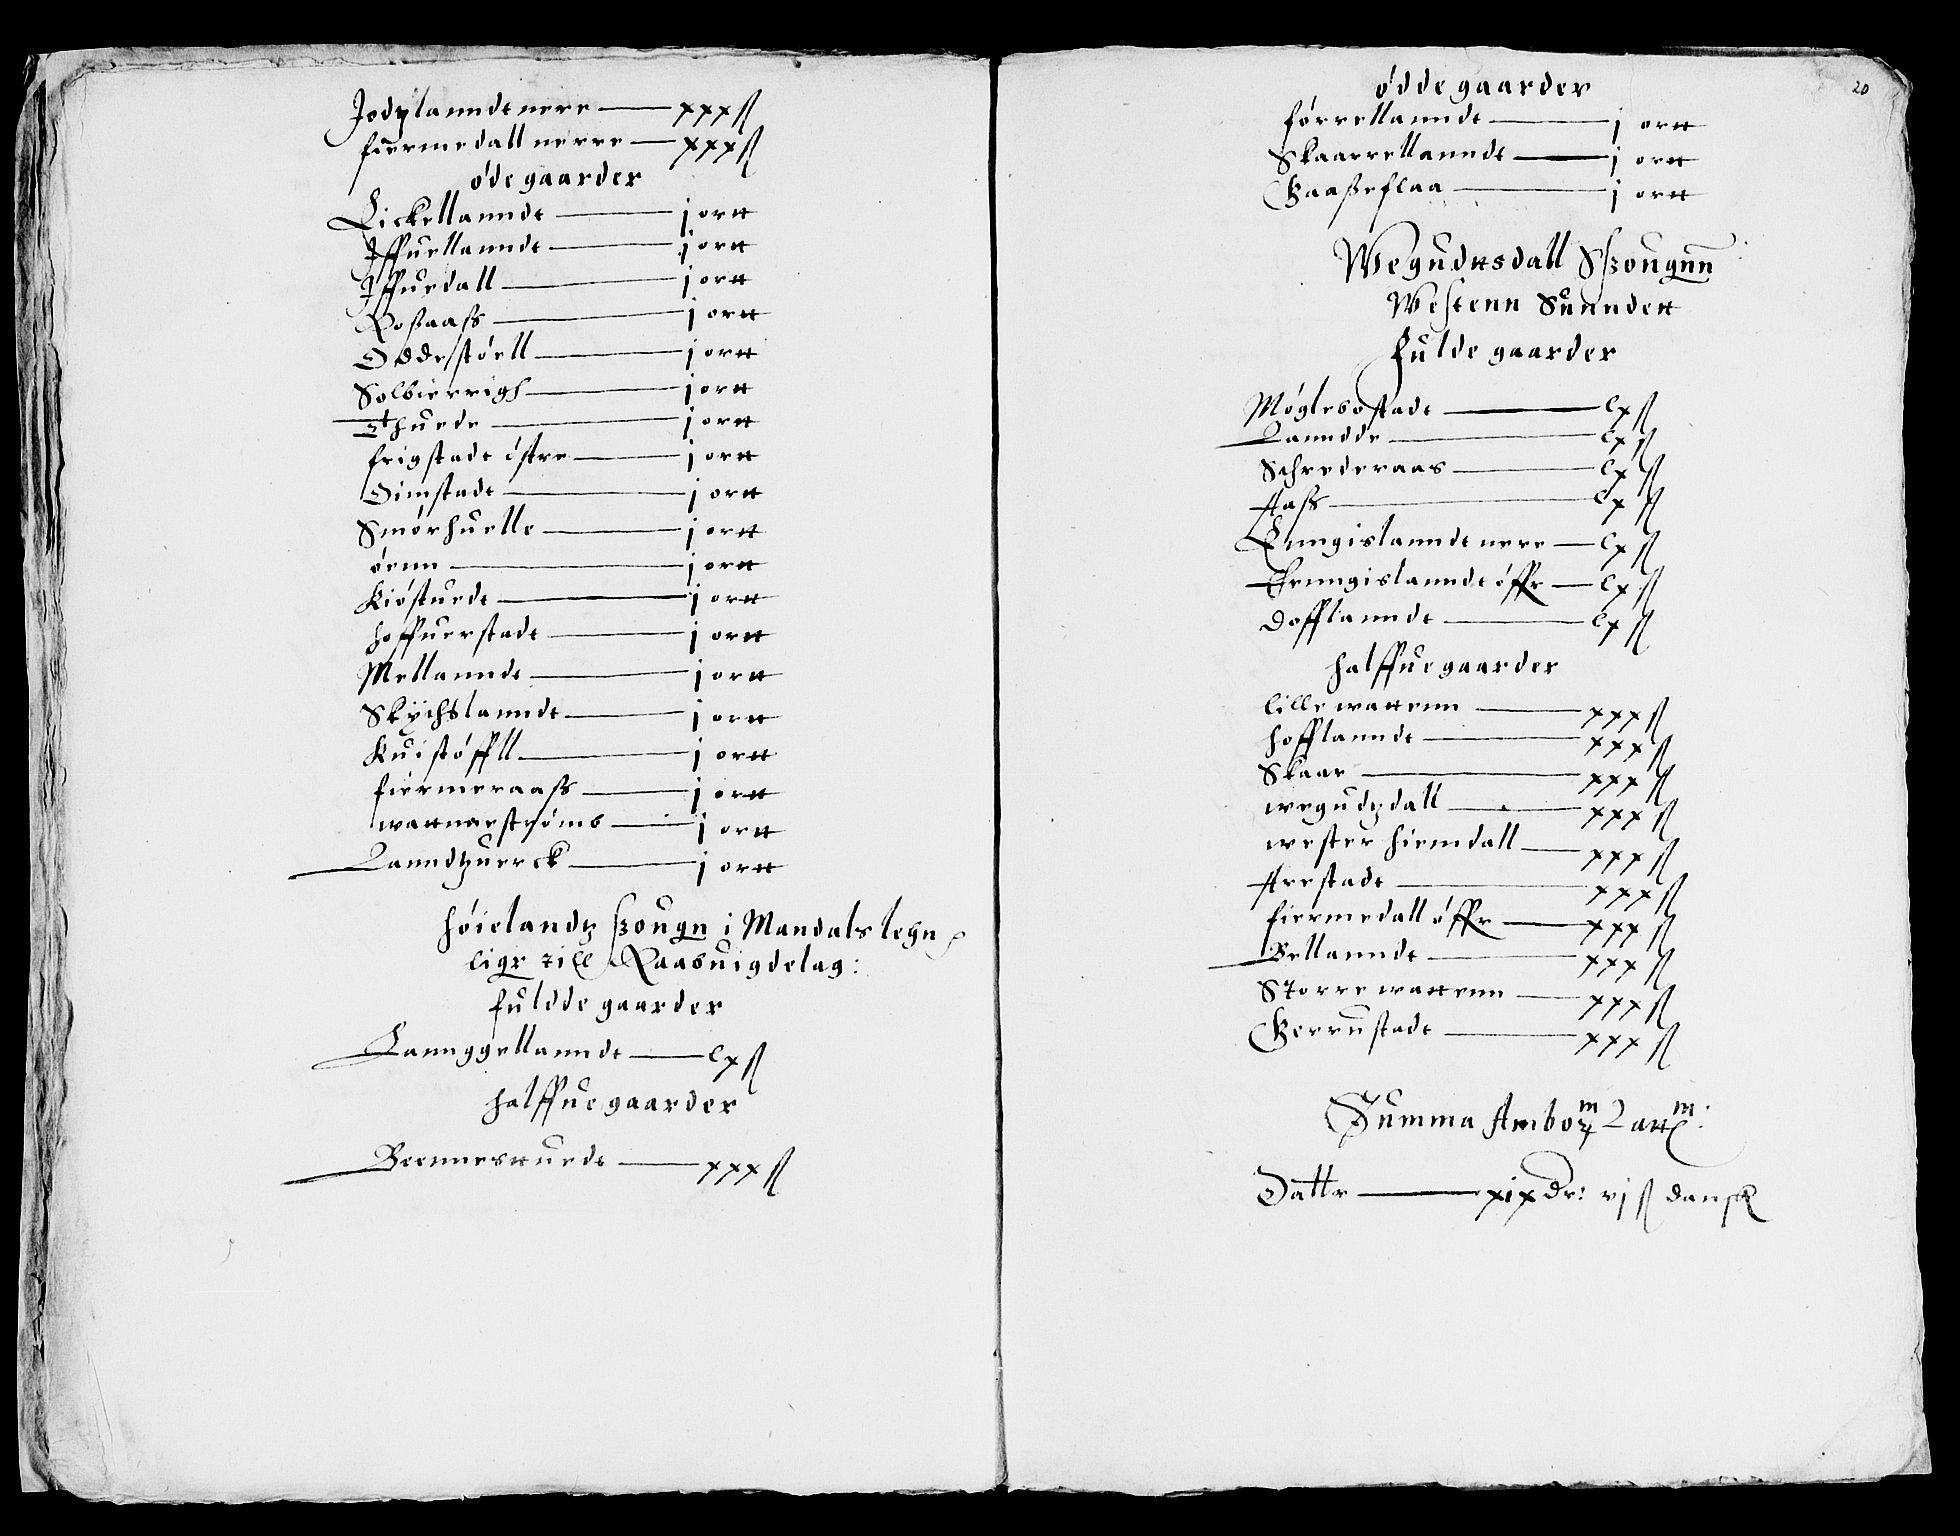 Jodtzlanndt nere — xxx ß
fiermedall nerre — xxx ß
øde gaarder
Lickellanndt — j ortt
Iffuellanndt — j ortt
Iffuedall — j ortt
Roßaass — j ortt
Oddestøell — j ortt
Solbierrigh — j ortt
Thuede — j ortt
frigstadt østre — j ortt
Oimstadt — j ortt
Smørhuelle — j ortt
øenn — j ortt
Kiøstuedt — j ortt
hoffuerstadt — j ortt
Mellanndt — j ortt
Skychslanndt — j ortt
Kuistøffll — j ortt
fiermeraass — j ortt
wattnestrømb — j ortt
Lanndtzuerck — j ortt
høielandtz szougn i Mandals lehn
ligr till Raabuigdelag:
fuldde gaarder
Lannggellanndt — lx ß
halffue gaarder
Beennestuedt — xxx ß
20
ødde gaarder
førrellanndt — j ortt
Skaarrellanndt — j ortt
Gaaßeflaa — j ortt
Wegudttsdall Sszougnn
Westenn Sunndett
fulde gaarder
Møglebostadt — lx ß
Lanndde — lx ß
Schrederaas — lx ß
Aass — lx ß
Erungislanndt nere — lx ß
Erungislanndt øffr — lx ß
Dofflanndt — lx ß
halffue gaarder
lille wattenn — xxx ß
hofflanndt — xxx ß
Skaar — xxx ß
wegudtzdall — xxx ß
wester hiemdall — xxx ß
Arestadt — xxx ß
fiermedall øffr — xxx ß
Bellanndt — xxx ß
Storre wattenn — xxx ß
Gierrustadt — xxx ß
Summa Ambotzm Lattm:
Dattr — xix Dr: vj ß dansk